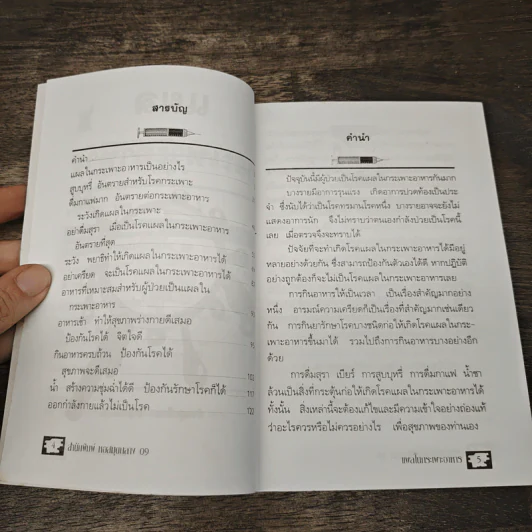 สารบัญ
คำนำ
แผลในกระเพาะอาหารเป็นอย่างไร
สูบบุหรี่ อันตรายสำหรับโรคกระเพาะ
ดื่มกาแฟมาก อันตรายต่อกระเพาะอาหาร
ระวังเกิดแผลในกระเพาะ
อย่าดื่มสุรา เมื่อเป็นโรคแผลในกระเพาะอาหาร
อันตรายที่สุด
ระวัง พยาธิทำให้เกิดแผลในกระเพาะอาหารได้
อย่าเครียด จะเป็นโรคแผลในกระเพาะอาหารได้
อาหารที่เหมาะสมสำหรับผู้ป่วยเป็นแผลใน
กระเพาะอาหาร
อาหารเช้า ทำให้สุขภาพร่างกายดีเสมอ
ป้องกันโรคได้ จิตใจดี
กินอาหารครบถ้วน ป้องกันโรคได้
สุขภาพจะดีเสมอ
น้ำ สร้างความชุ่มฉ่ำได้ดี ป้องกันรักษาโรคก็ได้
ออกกำลังกายแล้วไม่เป็นโรค 122
4 สำนักพิมพ์ หอสมุดกลาง 09
คำนำ
ปัจจุบันนี้มีผู้ป่วยเป็นโรคแผลในกระเพาะอาหารกันมาก
บางรายมีอาการรุนแรง เกิดอาการปวดท้องเป็นประ
จำ ซึ่งนับได้ว่าเป็นโรคทรมานโรคหนึ่ง บางรายอาจจะยังไม่
แสดงอาการนัก จึงไม่ทราบว่าตนเองกำลังป่วยเป็นโรคนี้
เลย เมื่อตรวจจึงจะทราบได้
ปัจจัยที่จะทำเกิดโรคแผลในกระเพาะอาหารได้มีอยู่
หลายอย่างด้วยกัน ซึ่งสามารถป้องกันตัวเองได้ดี หากปฏิบัติ
อย่างถูกต้องก็จะไม่เป็นโรคแผลในกระเพาะอาหารเลย
การกินอาหารให้เป็นเวลา เป็นเรื่องสำคัญมากอย่าง
หนึ่ง อารมณ์ความเครียดก็เป็นเรื่องที่สำคัญมากเช่นเดียว
กัน การกินยารักษาโรคบางชนิดก่อให้เกิดโรคแผลในกระ-
เพาะอาหารขึ้นมาได้ รวมไปถึงการกินอาหารบางอย่างอีก
ด้วย
การดื่มสุรา เบียร์ การสูบบุหรี่ การดื่มกาแฟ น้ำชา
ล้วนเป็นสิ่งที่กระตุ้นก่อให้เกิดโรคแผลในกระเพาะอาหารได้
ทั้งนั้น สิ่งเหล่านี้จะต้องแก้ไขและมีความเข้าใจอย่างถ่องแท้
ว่าอะไรควรหรือไม่ควรอย่างไร เพื่อสุขภาพของท่านเอง
แผลในกระเพาะอาหาร 5